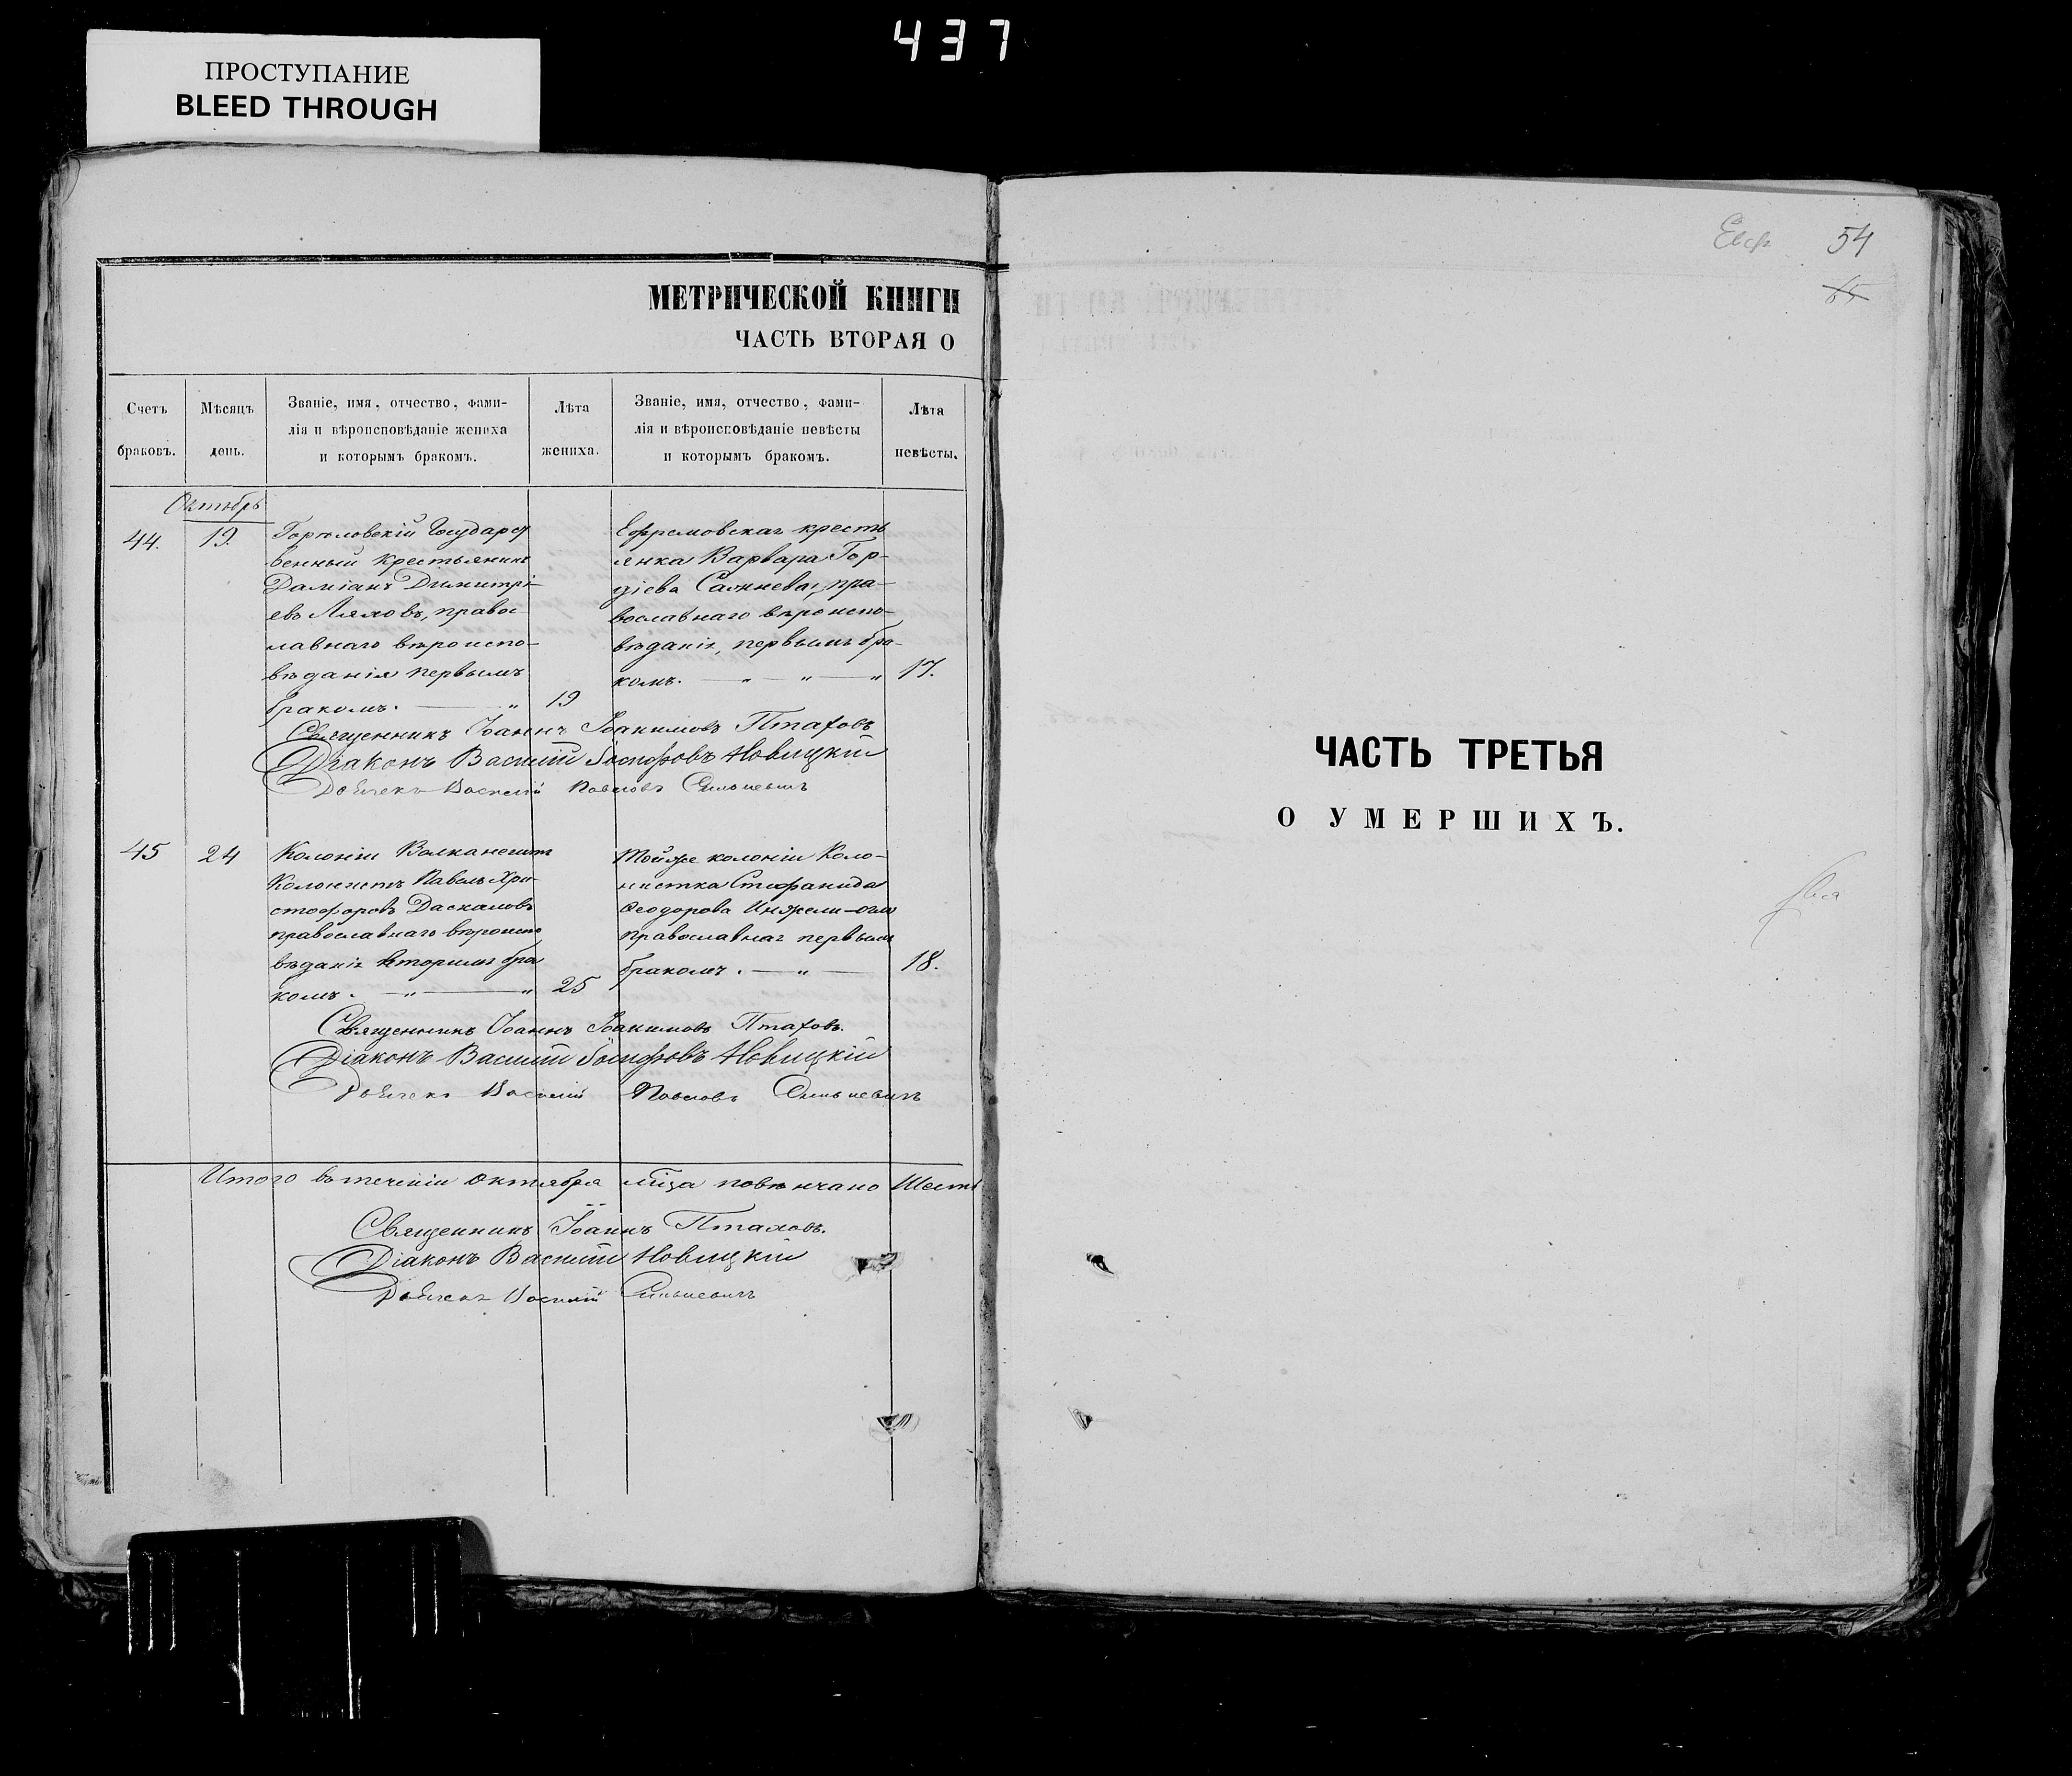 437
ПРОСТУПАНИЕ
BLEED THROUGH
МЕТРИЧЕСКОЙ КНИГИ
ЧАСТЬ ВТОРАЯ О
Счетъ браковъ.
Мѣсяцъ день.
Званіе, имя, отчество, фами-
лія и вѣроисповѣданіе жениха
и которымъ бракомъ.
Лѣта жениха.
Званіе, имя, отчество, фами-
лія и вѣроисповѣданіе невѣсты
и которымъ бракомъ.
Лѣта невѣсты.
Октябрь
44.
19.
Государст
венный крестьянинъ
Даміанъ Димитрі-
евъ Ляховъ, правос
лавнаго вѣроиспо-
вѣданія первымъ
бракомъ. — „
19
Ефремовская кресть
янка Варвара Гор-
діева пра-
вославнаго вѣроиспо-
вѣданія, первымъ бра-
комъ. — „ — „ — „
17.
Священникъ Іоаннъ Іоакимовъ Птаховъ
Діаконъ Василій Іосифовъ Новицкій
Дьячекъ Василій Павловъ
45
24
Колоніи
Колонистъ Павелъ Хри-
стофоровъ Даскаловъ
православнаго вѣроиспо
вѣданія вторымъ бра
комъ. — „ — „
25
Тойже колоніи Коло-
нистка Стефанида
Ѳеодорова
православная первымъ
бракомъ. — „ —
18.
Священникъ Іоаннъ Іоакимовъ Птаховъ.
Діаконъ Василій Іосифовъ Новицкій
Дьячекъ Василій Павловъ
Итого въ теченіи октября мѣца повѣнчано Шесть
Священникъ Іоаннъ Птаховъ.
Діаконъ Василій Новицкій
Дьячекъ Василій
54
ЧАСТЬ ТРЕТЬЯ
О УМЕРШИХЪ.